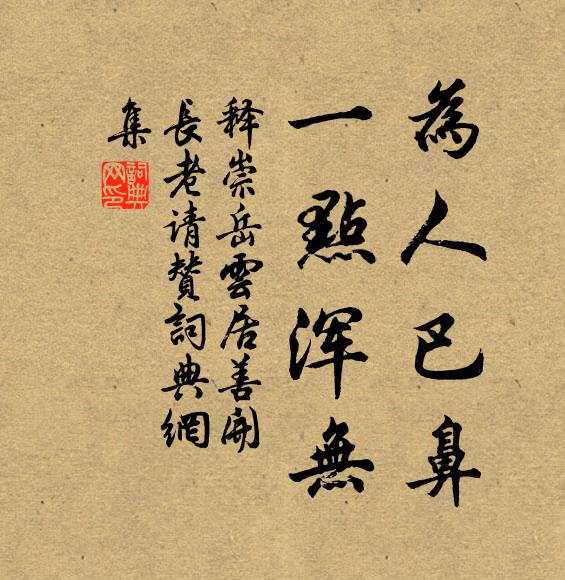 為人巴鼻
一點浑無
释崇岳雲居善開
長老请贊詞典網
集
詞典
网印